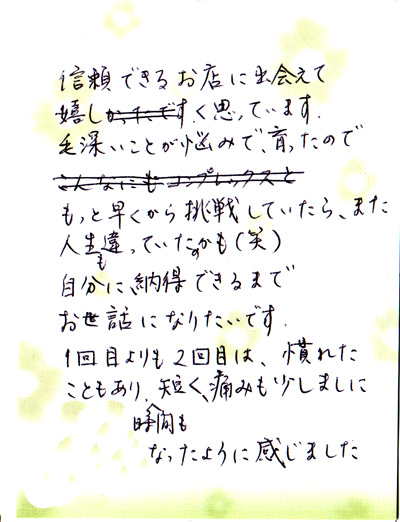 信頼できるお店に出会えて
嬉しかったですく思っています.
毛深いことが悩みで、育ったので
こんなにもコンプレックスと
もっと早くから挑戦していたら、また
人生も違っていたのかも(笑)
自分に納得できるまで
お世話になりたいです.
1回目よりも2回目は、慣れた
こともあり、時間も短く、痛みも少しましに
なったように感じました